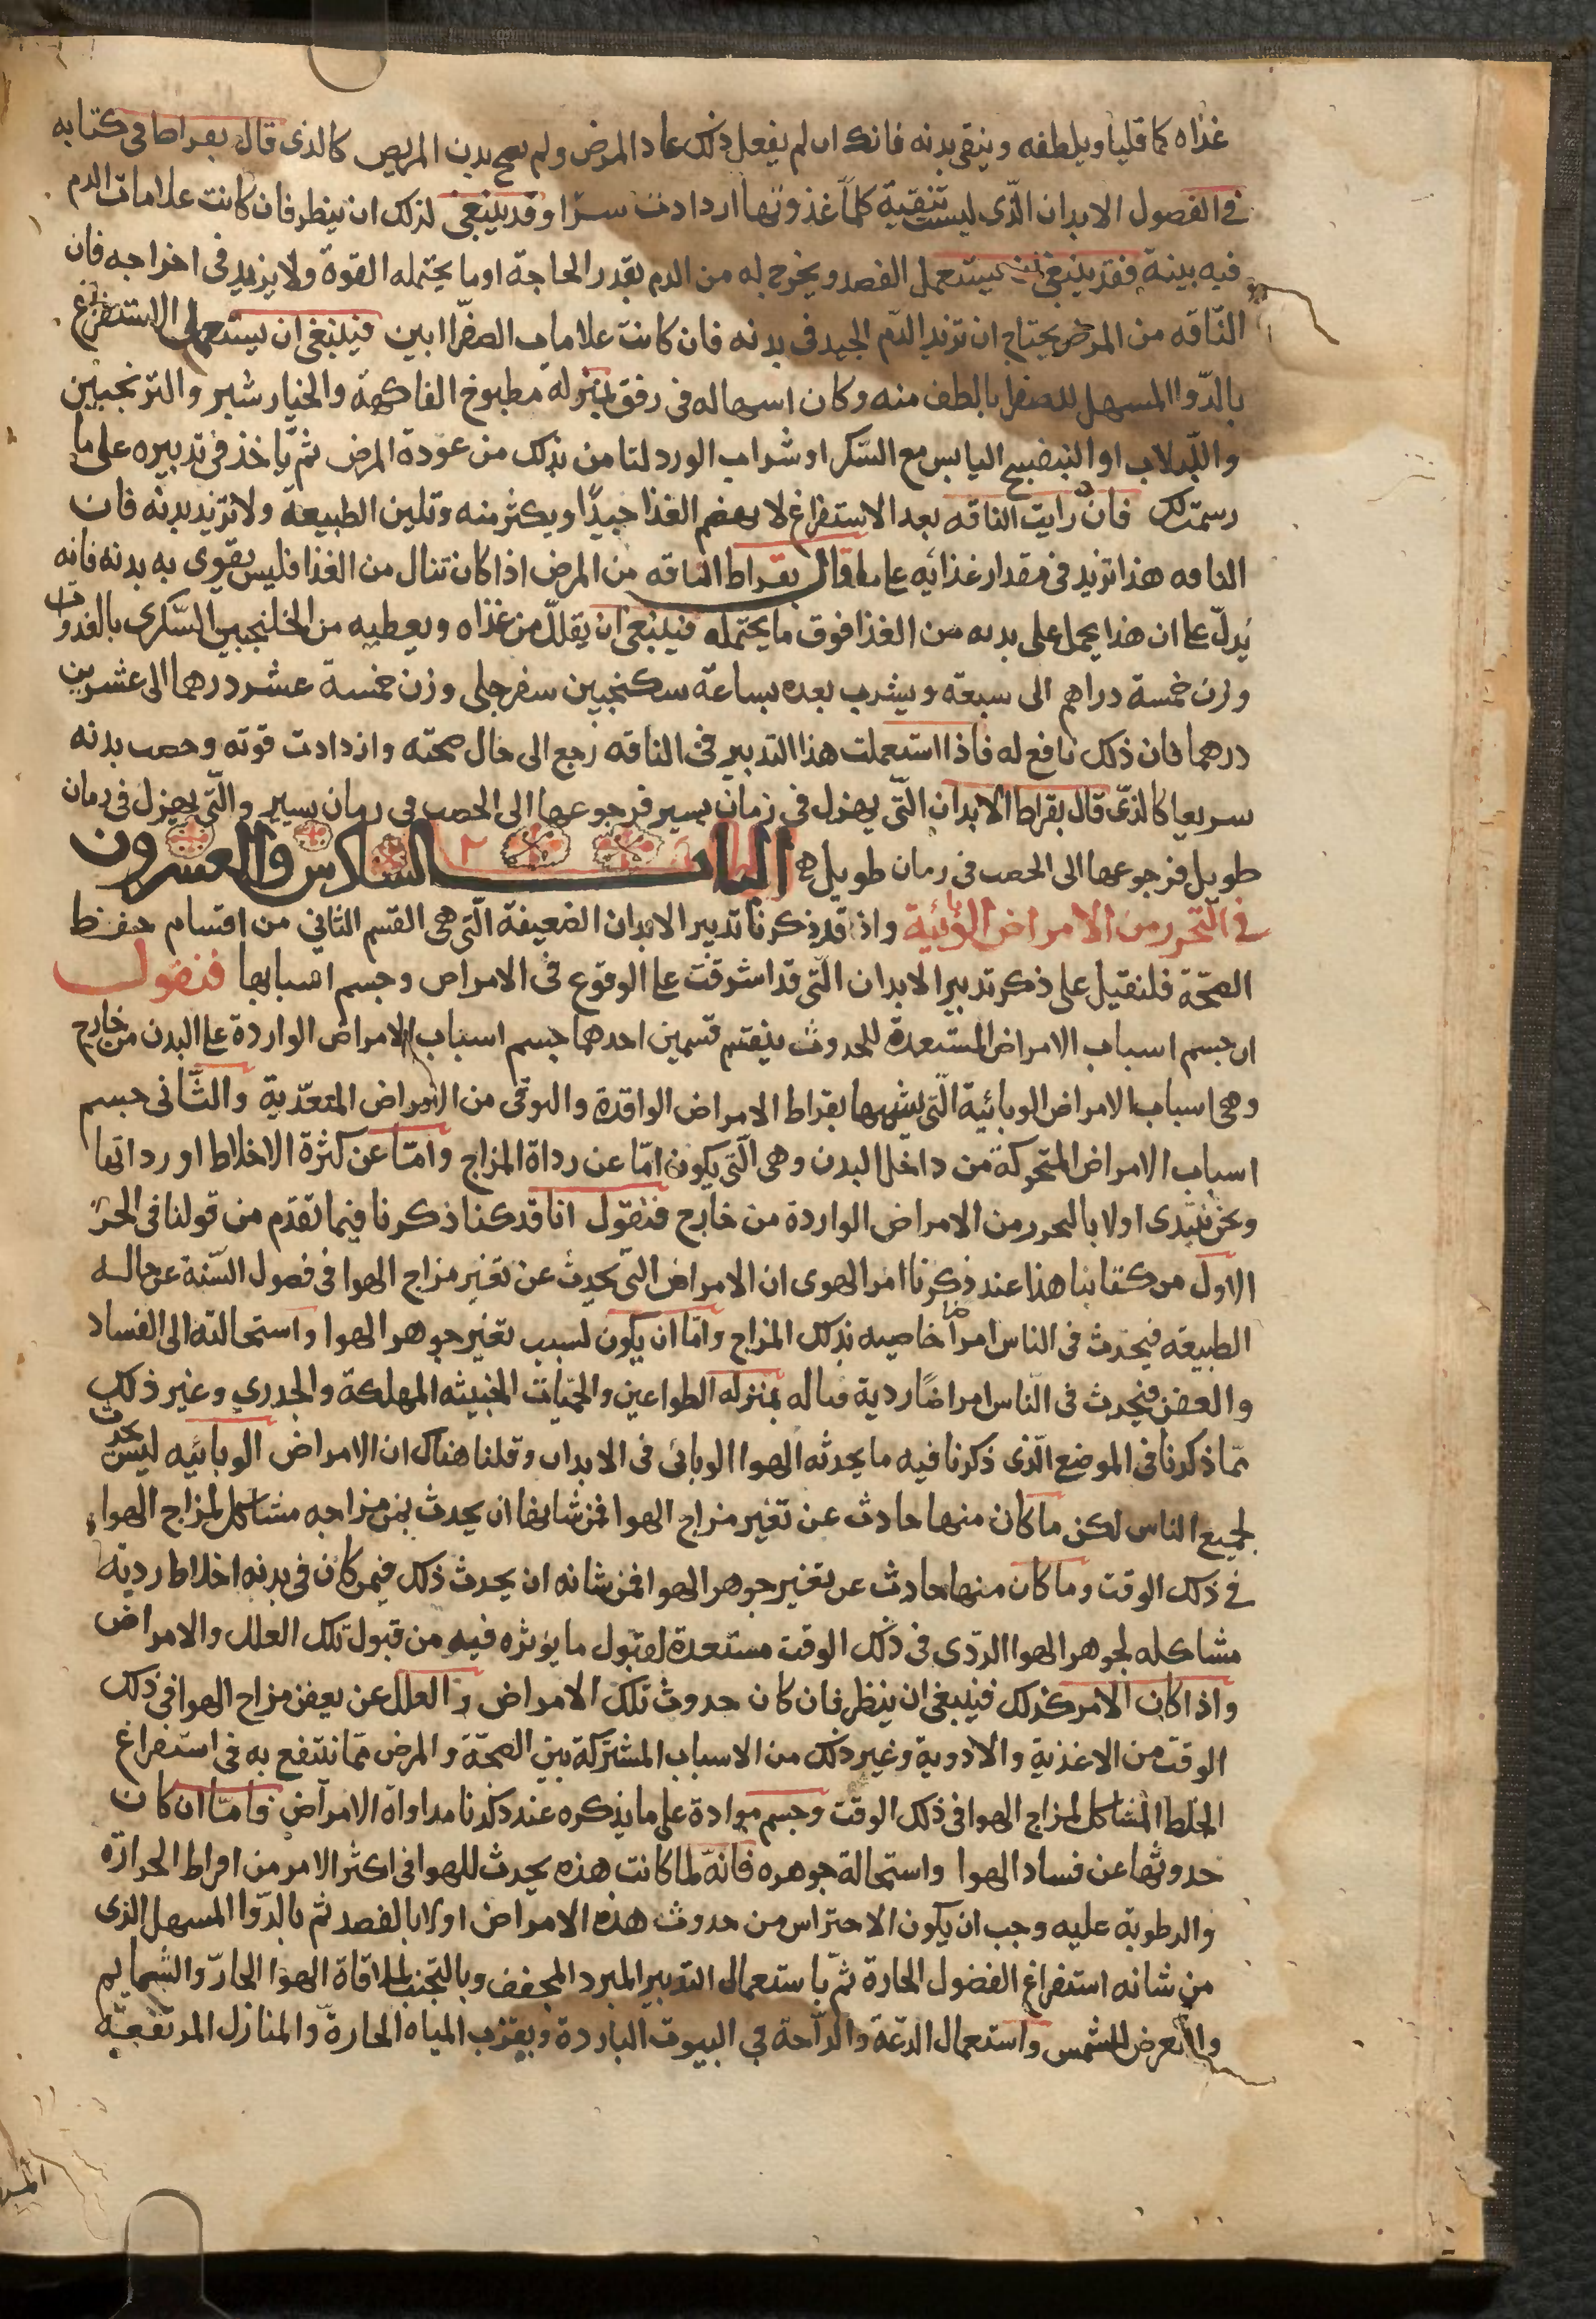 غذاه كما قليا ويلطفه وينقى بدنه فانك ان لم يفعل ذلك عاد المرض ولم يصح بدن المريض كالذى قال بقراط فى كتابه
فى الفصول الابدان الذى ليست تنقية كلما غذوتها ازدادت شرا وقد ينبغى لذلك ان ينظر فان كانت علامات الدم
فيه بينة فقد ينبغى ان يستعمل الفصد ويخرج له من الدم بقدر الحاجة او ما يحتمله القوة ولا يزيد فى اخراجه فان
الناقه من المرض يحتاج ان تزيد الدم الجيد فى بدنه فان كانت علامات الصفرا ابين فينبغى ان يستعمل الاستفراغ
بالدوا المسهل للصفرا بالطف منه وكان اسهاله فى رفق بمنزلة مطبوخ الفاكهة والخيار شبر والترنجبين
واللبلاب او البنفسج اليابس مع السكر او شراب الورد لتامن بذلك من عودة المرض ثم ياخذ فى تدبيره على ما
رسمت لك فان رايت الناقه بعد الاستفراغ لا يهضم الغذا جيدا ويكثر منه وتلين الطبيعة ولا تزيد بدنه فان
الناقه هذا تزيد فى مقدار غذائه على ما قال بقراط الناقه من المرض اذا كان تنال من الغذا فليس يقوى به بدنه فانه
يدل على ان هذا يحمل على بدنه من الغذا فوق ما يحتمله فينبغى ان يقلل من غذاه ويعطيه من الخلنجبين السكرى بالغدوات
وزن خمسة دراهم الى سبعة ويشرب بعده بساعة سكنجبين سفرجلى وزن خمسة عشر درهما الى عشرين
درهما فان ذلك نافع له فاذا استعملت هذا التدبير فى الناقه رجع الى حال صحته وازدادت قوته وخصب بدنه
سريعا كالذى قال بقراط الابدان التى يهزل فى زمان يسير فرجوعها الى الخصب فى زمان يسير والتى يهزل فى زمان
طويل فرجوعها الى الخصب فى زمان طويل ه الباب السادس والعشرون
فى التحرز من الامراض الوبائية واذ قد ذكرنا تدبير الابدان الضعيفة التى هى القسم الثانى من اقسام حفظ
الصحة فلنقبل على ذكر تدبير الابدان التى قد اشرفت على الوقوع فى الامراض وحسم اسبابها فنقول
ان حسم اسباب الامراض المستعدة للحدوث ينقسم قسمين احدهما حسم اسباب الامراض الواردة على البدن من خارج
وهى اسباب الامراض الوبائية التى يسميها بقراط الامراض الوافدة والتوقى من الامراض المتعدية والثانى حسم
اسباب الامراض المتحركة من داخل البدن وهى التى يكون اما عن رداة المزاج واما عن كثرة الاخلاط او رداتها
ونحن نبتدى اولا بالتحرز من الامراض الواردة من خارج فنقول انا قد كنا ذكرنا فيما تقدم من قولنا فى الجز
الاول من كتابنا هذا عند ذكرنا امر الهوى ان الامراض التى يحدث عن تغير مزاج الهوا فى فصول السنة عن حاله
الطبيعه فيحدث فى الناس امراضا خاصيه بذلك المزاج واما ان يكون لسبب تغير جوهر الهوا واستحالته الى الفساد
والعفن فيحدث فى الناس امراضا ردية قتاله بمنزله الطواعين والحميات الخبيثه المهلكة والجدرى وغير ذلك
مما ذكرنا فى الموضع الذى ذكرنا فيه ما يحدثه الهوا الوبائى فى الابدان وقلنا هناك ان الامراض الوبائيه ليس يحدث
لجميع الناس لكن ما كان منها حادث عن تغير مزاج الهوا فمن شانها ان يحدث بمن مزاجه مشاكل لمزاج الهوا
فى ذلك الوقت وما كان منها حادث عن تغير جوهر الهوا فمن شانه ان يحدث ذلك فيمن كان فى بدنه اخلاط ردية
مشاكله لجوهر الهوا الردى فى ذلك الوقت مستعدة لقبول ما يؤثره فيه من قبول تلك العلل والامراض
واذا كان الامر كذلك فينبغى ان ينظر فان كان حدوث تلك الامراض والعلل عن بعض مزاج الهوا فى ذلك
الوقت من الاغذية والادوية وغير ذلك من الاسباب المشتركة بين الصحة والمرض مما ننتفع به فى استفراغ
الخلط المشاكل لمزاج الهوا فى ذلك الوقت وحسم موادة على ما يذكره عند ذكرنا مداواة الامراض فاما ان كان
حدوثها عن فساد الهوا واستحالة جوهره فانه لما كانت هذه يحدث للهوا فى اكثر الامر من افراط الحرارة
والرطوبة عليه وجب ان يكون الاحتراس من حدوث هذه الامراض اولا بالفصد ثم بالدوا المسهل الذى
من شانه استفراغ الفضول الحارة ثم باستعمال التدبير المبرد المجفف وبالتجنب لملاقاة الهوا الحار والشمايم
والتعرض للشمس واستعمال الدعة والراحة فى البيوت الباردة وبقرب المياه الحارة والمنازل المرتفعة